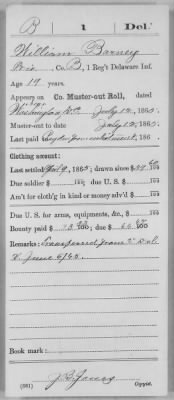 B | 1 | Del.
William Barney
Co. B, 1 Reg't Delaware Inf.
Age 19 years.
Appears on Co. Muster-out Roll, dated
Washington D.C. July 12, 1865.
Muster-out to date July 12, 1865.
Last paid 186 .
Clothing account:
Last settled 1865; drawn since $ 100
Due soldier $ 100; due U. S. $ 100
Am't for cloth'g in kind or money adv'd $ 100
Due U. S. for arms, equipments, &c., $ 100
Bounty paid $ 100; due $ 100
Remarks: Transferred from 2" Del
June 6/65
Book mark:
(861) Copyist.